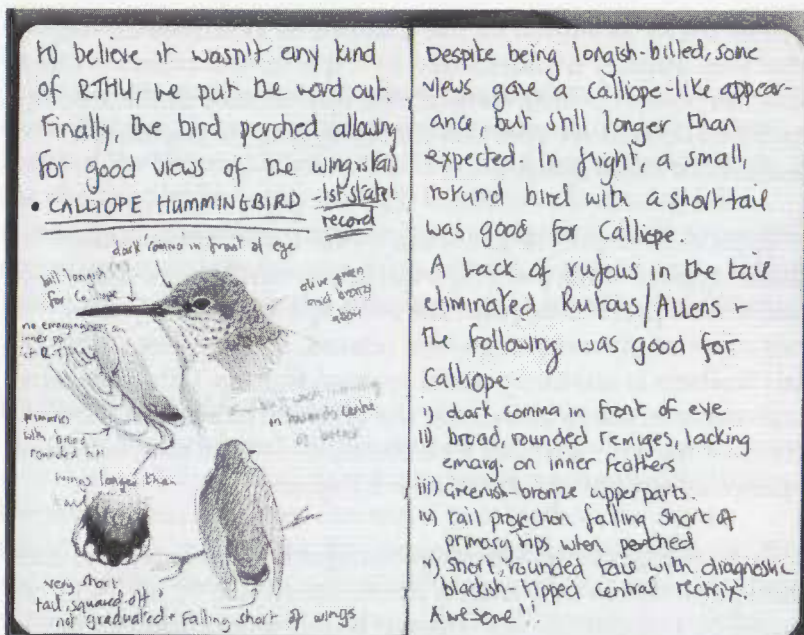 to believe it wasn't any kind
of RTHU, we put the word out.
Finally, the bird perched allowing
for good views of the wings + tail
• CALLIOPE HUMMINGBIRD - 1st state
record
dark comma in front of eye
bill longish
for Calliope
olive green
and bronzy
above
no emargination on
inner pp
primaries
with broad
rounded tips
buff wash
in towards centre
of breast
wings longer than
tail
very short
tail, squared-off +
not graduated + falling short of wings
Despite being longish-billed, some
views gave a Calliope-like appear-
ance, but still longer than
expected. In flight, a small,
rotund bird with a short tail
was good for Calliope.
A lack of rufous in the tail
eliminated Rufous/Allens +
the following was good for
Calliope -
i) dark comma in front of eye
ii) broad, rounded remiges, lacking
emarg. on inner feathers
iii) Greenish-bronze upperparts.
iv) tail projection falling short of
primary tips when perched
v) Short, rounded tail with diagnostic
blackish-tipped central rectrix.
Awesome!!